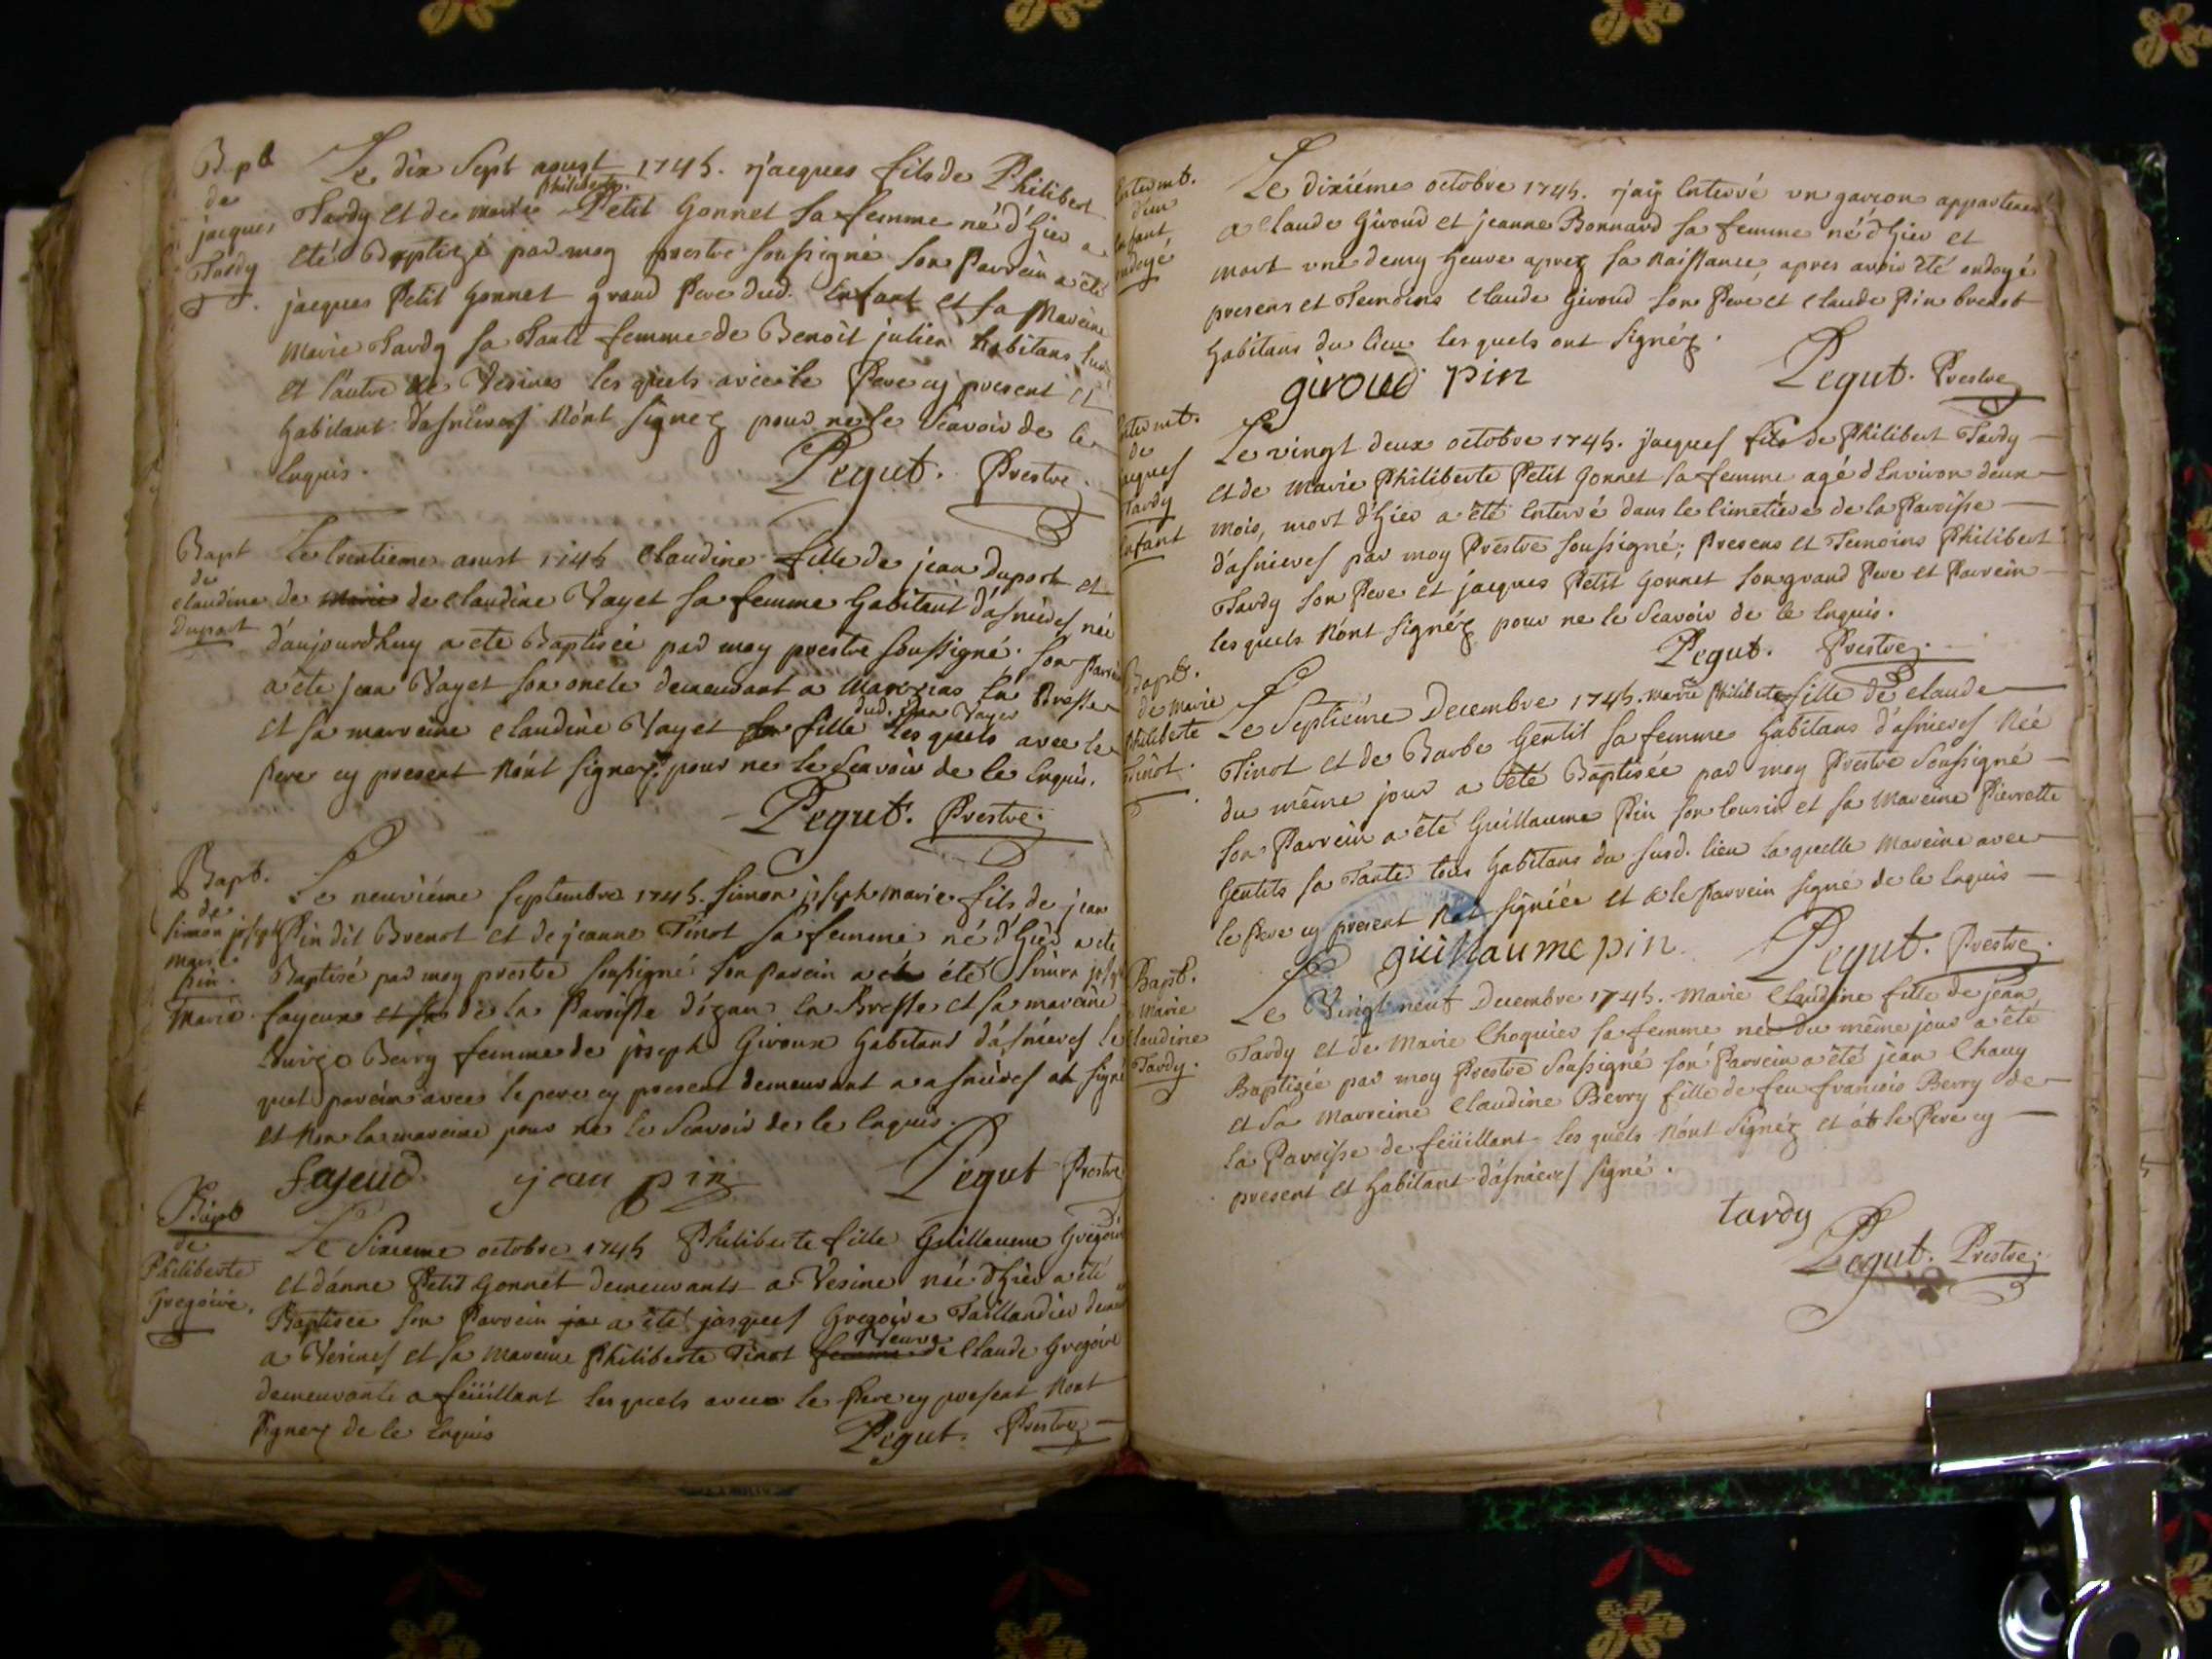 Bapt
de
jacques
Tardy
Le dix Sept aoust 1745. jacques fils de Philibert
Tardy et de marie philiberte Petit Gonnet sa femme né d'hier a
eté Baptizé par moy prestre soussigné son Parrein a eté
jacques Petit Gonnet grand Pere dud. Enfant et sa Mareine
Marie Tardy sa Tante femme de Benoit julien habitans lun
et l'autre de Vesines les quels avec le Pere cy present et
habitant d'asnieres n'ont signez pour ne le scavoir de ce
Enquis.
Pegut. Prestre.
Bapt
de
claudine
Duport
Le trentieme aoust 1745 Claudine fille de jean duport et
de Marie de claudine Vayet sa femme habitant d'asnieres née
d'aujourdhuy a ete Baptisée par moy prestre soussigné. son Parrein
a ete jean Vayet son oncle demeurant a Manzias en Bresse
et sa marreine claudine Vayet sa fille dud. jean Vayet les quels avec le
Pere cy present n'ont signez, pour ne le scavoir de ce Enquis.
Pegut. Prestre.
Bapt.
de
simon joseph
marie
pin.
Marie
Le neuviéme septembre 1745. simon joseph marie fils de jean
Pin dit Brenot et de jeanne Tinot sa femme né d'hier a ete
Baptisé par moy prestre soussigné son parein a été simon joseph
fayeux et sa de la Paroisse d'ozan en Bresse et sa mareine
Berry femme de joseph Giroux habitans d'asnieres le
quel parein avec le pere cy present demeurant a asnieres ot signé
et non la mareine pour ne le scavoir de ce Enquis.
fajeud jean pin Pegut Prestre
Bapt
de
Philiberte
Gregoire.
Le Sixieme octobre 1745 Philiberte fille Guillaume Gregoire
et d'anne Petit Gonnet demeurants a Vesine née d'hier a été
Baptisee son Parrein ja a été jacques Gregoire Taillandier demeu
a Vesines et sa Mareine Philiberte Tinot femme Veuve de Claude Gregoire
demeurante a feüillant les quels avec le Pere cy present n'ont
signez de ce Enquis
Pegut. Prestre
Enterrmt.
d'un
Enfant
ondoyé
Le dixiéme octobre 1745. j'aÿ Enterré un garçon appartenant
a claude Giroud et jeanne Bonnard sa femme né d'hier et
mort une demy heure aprez sa Naissance, apres avoir été ondoyé
presens et Temoins claude Giroud son Pere et claude Pin brenot
habitans du lieu les quels ont signéz.
giroud pin Pegut. Prestre
Enterrmt.
de
jacques
Tardy
Enfant
Le vingt deux octobre 1745. jacques fils de Philibert Tardy
et de Marie Philiberte Petit Gonnet sa femme agé d'Environ deux
mois, mort d'hier a été Enterré dans le Cimetiere de la Paroisse
d'asnieres par moy Prestre soussigné; Presens et Temoins Philibert
Tardy son Pere et jacques Petit Gonnet son grand Pere et Parrein
les quels n'ont signéz pour ne le scavoir de ce Enquis.
Pegut. Prestre.
Bapt.
de Marie
philiberte
Tinot.
Le Septiéme Decembre 1745. Marie philiberte fille de claude
Tinot et de Barbe Gentit sa femme habitans d'asnieres née
du même jour a été Baptisée par moy Prestre soussigné
son Parrein a été Guillaume Pin son cousin et sa Mareine Pierrette
Gentits sa Tante tous habitans du susd. lieu la quelle Mareine avec
le Pere cy present signée et a le Parrein signé de ce Enquis
guillaume pin Pegut. Prestre.
Bapt.
Marie
claudine
Tardy.
Le Vingt neuf Decembre 1745. Marie Claudine fille de jean
Tardy et de Marie Choquier sa femme née du même jour a été
Baptizée par moy Prestre soussigné son Parrein a été jean Chauy
et sa Marreine Claudine Berry fille de feu francois Berry de
la Paroisse de feüillant les quels n'ont signéz et at le Pere cy
present et habitant d'asnieres signé.
tardy
Pegut. Prestre.